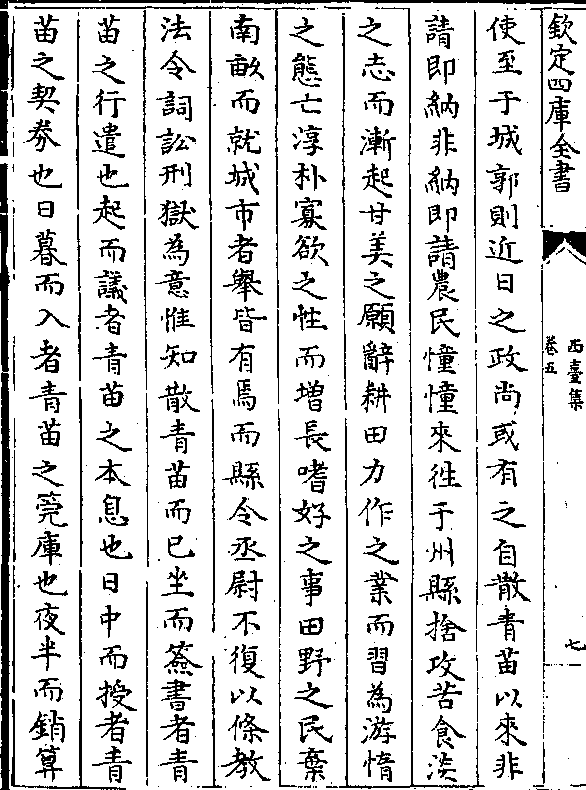 欽定四庫全書
西臺集
卷五
七
使至于城郭則近日之政尚或有之自散青苗以來非
請即納非納即請農民憧憧來徃于州縣捨攻苦食淡
之志而漸起甘美之願辭耕田力作之業而習為游惰
之態亡淳朴寡欲之性而増長嗜好之事田野之民棄
南畝而就城市者舉皆有焉而縣令丞尉不復以條教
法令詞訟刑獄為意惟知散青苗而已坐而簽書者青
苗之行遣也起而議者青苗之本息也日中而授者青
苗之契券也日暮而入者青苗之筦庫也夜半而銷算